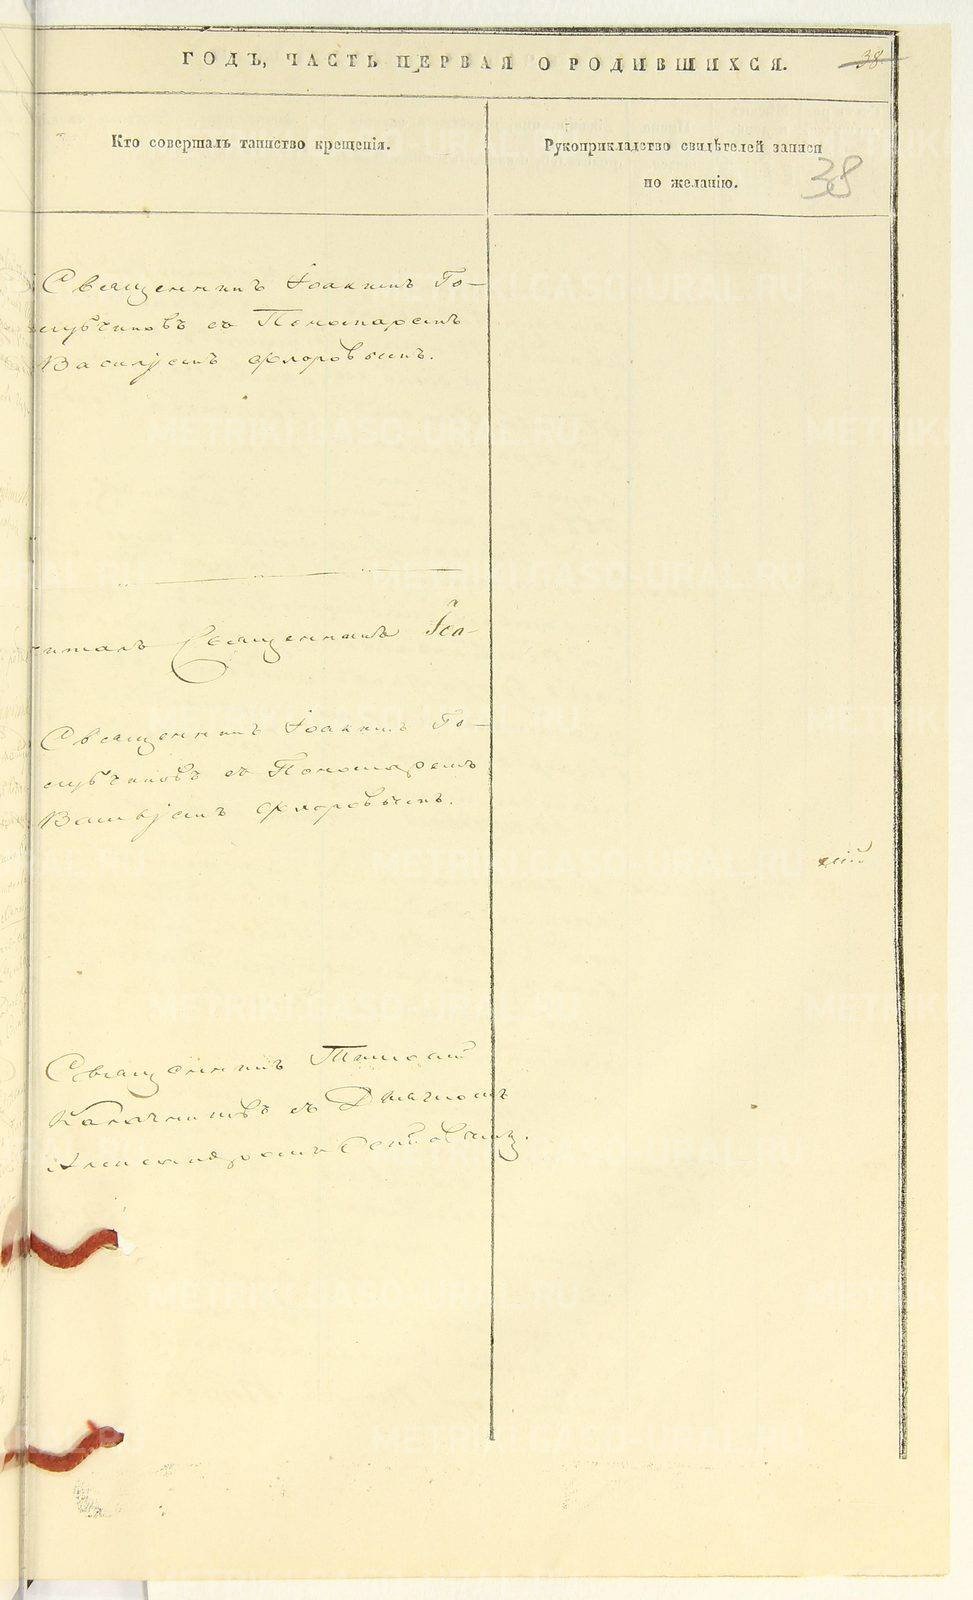 ГОДЪ, ЧАСТЬ ПЕРВАЯ О РОДИВШИХСЯ.
38
Кто совершалъ таинство крещенія.
Рукоприкладство свидѣтелей записи
по желанію.
38
Священникъ Іоакимъ Го-
лубчиковъ съ Пономаремъ
Василіемъ Флоровымъ.
Священникъ
Священникъ Іоакимъ Го-
лубчиковъ съ Пономаремъ
Василіемъ Флоровымъ.
Священникъ
съ Дьячкомъ
Александромъ
METRIKI.GASO-URAL.RU